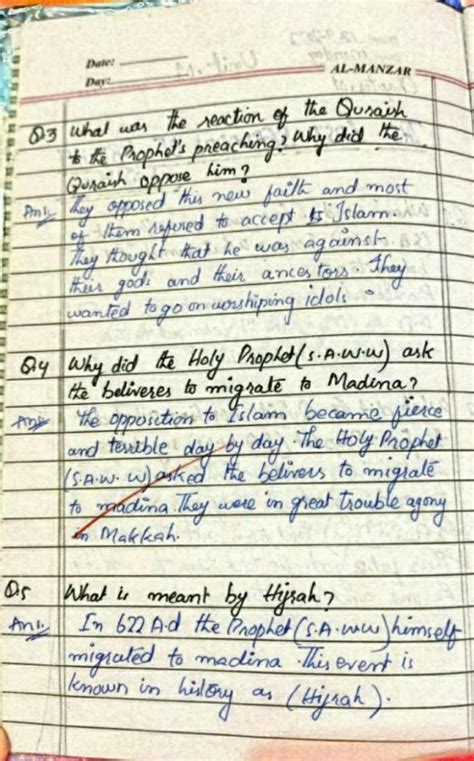 Date:
Day:
AL-MANZAR
Q3 What was the reaction of the Quraish
to the Prophet's preaching? Why did the
Quraish oppose him?
Ans. They opposed this new faith and most
of them refused to accept to Islam.
They thought that he was against
their gods and their ancestors. They
wanted to go on worshiping idols.
Q4 Why did the Holy Prophet (S.A.W.W) ask
the beliveres to migrate to Madina?
Ans The opposition to Islam became fierce
and terrible day by day. The Holy Prophet
(S.A.W.W) asked the belivers to migrate
to madina. They were in great trouble agony
in Makkah.
Q5 What is meant by Hijrah?
Ans. In 622 A.d the Prophet (S.A.W.W) himself
migrated to madina. This event is
known in history as (Hijrah).